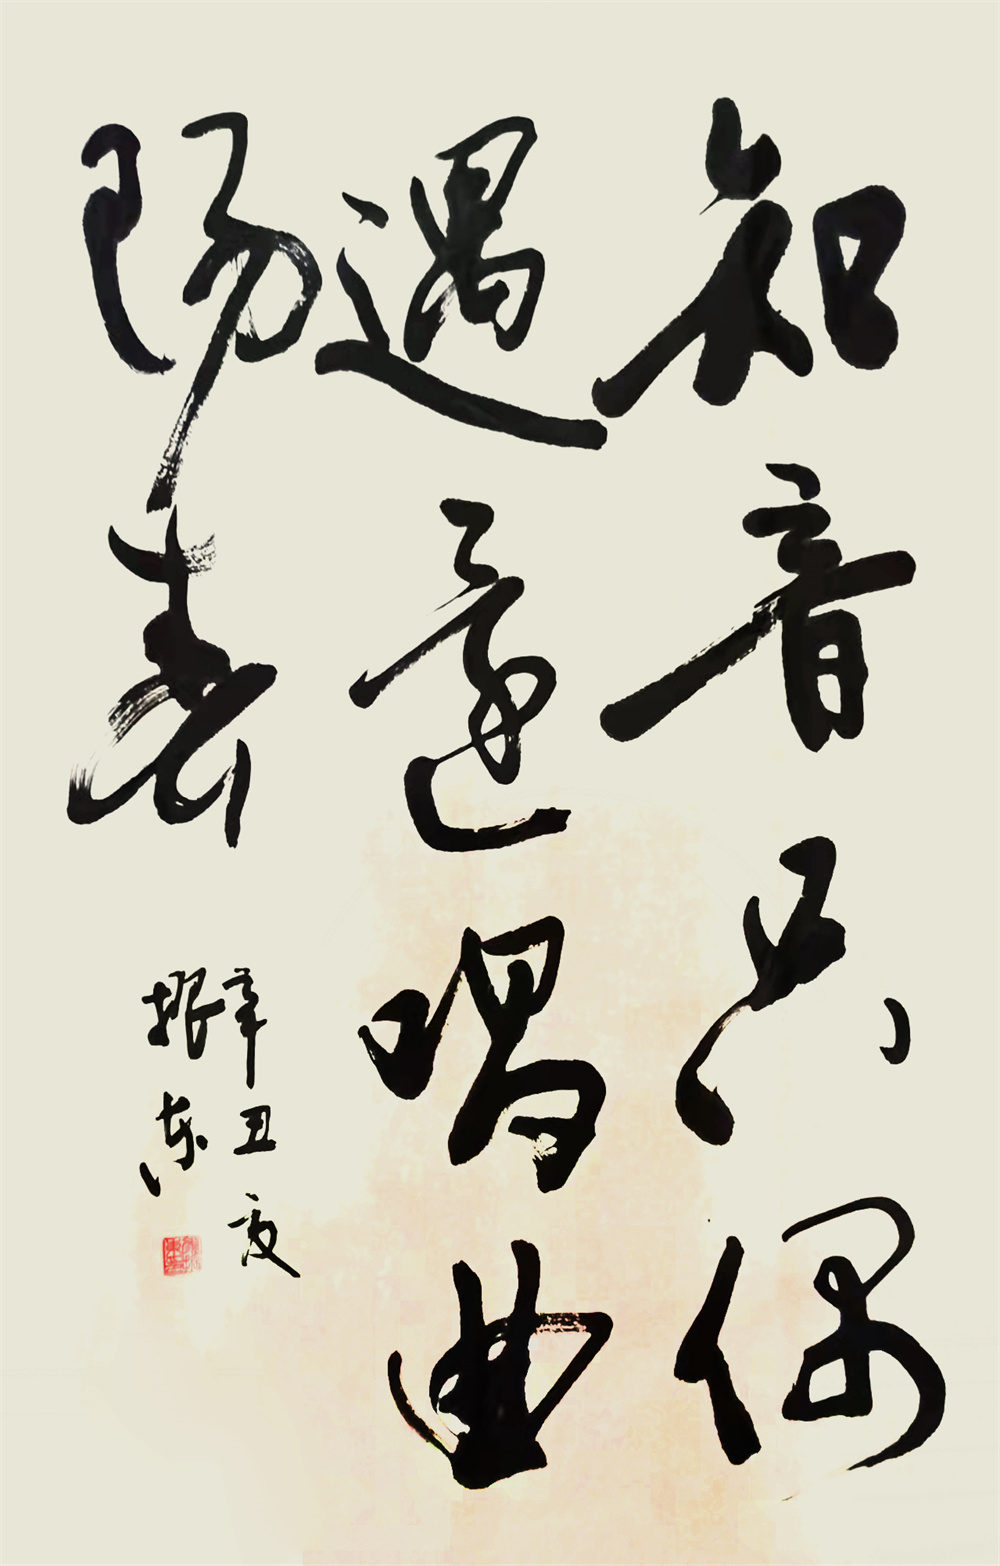 知音只偶
遇意唱曲
阳春
辛丑夏
振东